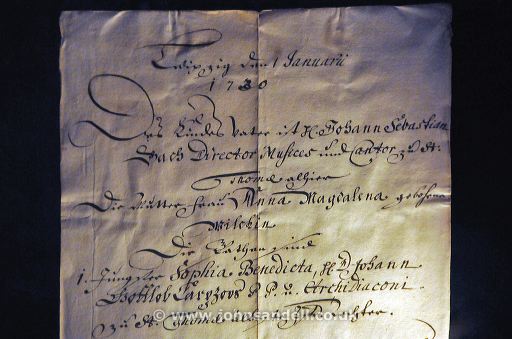 Leipzig den 1 Januarii
1730
Des Kindes Vater ist H. Johann Sebastian
Bach Director Musices und Cantor zu St.
Thomæ alhier
Die Mutter Frau Anna Magdalena gebohrne
Wilckin
Die Pathen sind
1. Jungfer Sophia Benedicta, H. D. Johann
Gottlob Carpzovs P. P. u. Archidiaconi
zu St. Thomas Tochter.
© www.johnsandell.co.uk